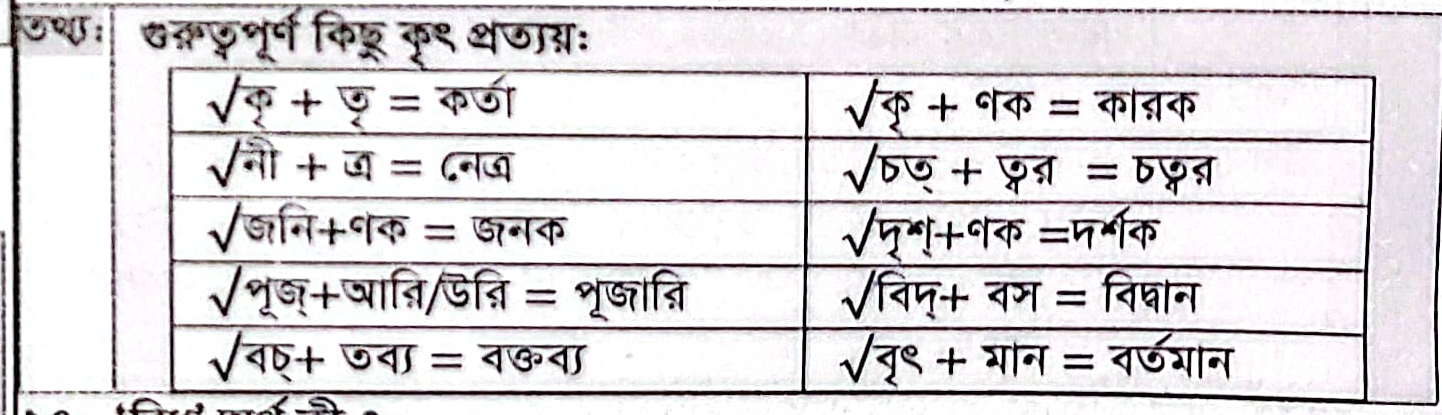 তথ্য: গুরুত্বপূর্ণ কিছু কৃৎ প্রত্যয়:
√কৃ + তৃ = কর্তা √কৃ + ণক = কারক
√নী + ত্র = নেত্র √চত্ + ত্বর = চত্বর
√জনি+ণক = জনক √দৃশ্+ণক =দর্শক
√পূজ্+আরি/উরি = পূজারি √বিদ্+ বস = বিদ্বান
√বচ্+ তব্য = বক্তব্য √বৃৎ + মান = বর্তমান